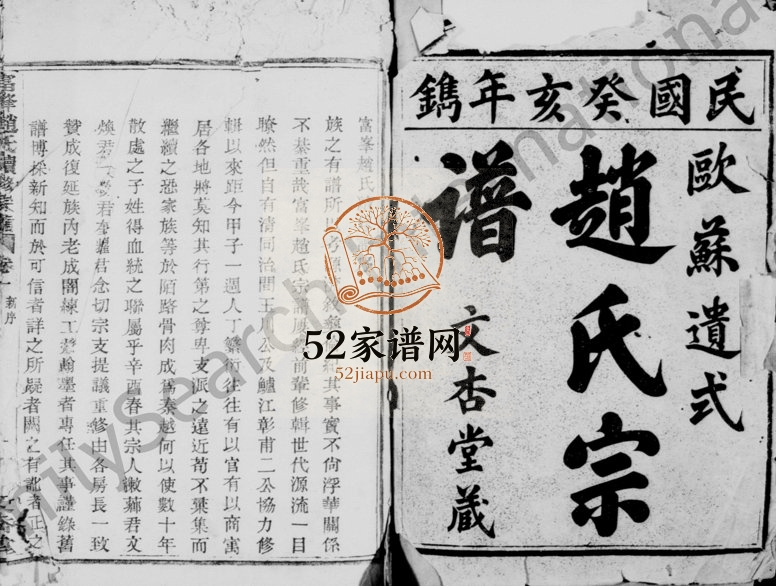 民國癸亥年鐫
歐蘇遺式
趙氏宗
譜
文杏堂藏
富峯趙氏
族之有譜所以 其事實不尙浮華關係
不綦重哉富峯趙氏宗譜 前輩修輯世代源流一目
瞭然但自有淸同治間王 及鱸江彰甫二公協力修
輯以來距今甲子一週人丁繁衍往往有以官有以商寓
居各地將莫知其行第之尊卑支派之遠近苟不彙集而
繼續之恐家族等於陌路骨肉成爲秦越何以使數十年
散處之子姓得血統之聯屬乎辛酉春其宗人 君文
煥君 君 君念切宗支提議重修由各房長一致
贊成復延族內老成闇練工於翰墨者專任其事謹錄舊
譜博採新知而於可信者詳之所疑者闕之有訛者正之
富峯趙氏續修宗譜 卷一 新序
52家谱网
52jiapu.com
FamilySearch International